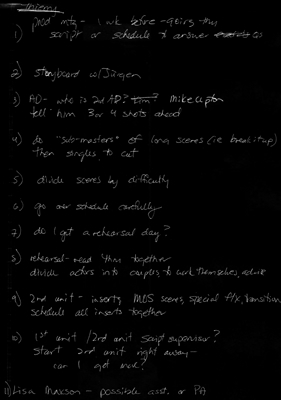 prod mtg - 1 wk before - going thru
1) script or schedule & answer Qs
2) storyboard w/Jurgen
3) AD - who is 2nd AD? Tim? Mike Upton
tell him 3 or 4 shots ahead
4) do "sub-masters" of long scenes (ie break it up)
then singles to cut
5) divide scenes by difficulty
6) go over schedule carefully
7) do I get a rehearsal day?
8) rehearsal - read thru together
divide actors into couples to work themselves,
9) 2nd unit - inserts, MOS scenes, special f/x, transitions
schedule all inserts together
10) 1st unit / 2nd unit script supervisor?
start 2nd unit right away -
can I get more?
11) Lisa - possible asst. or PA